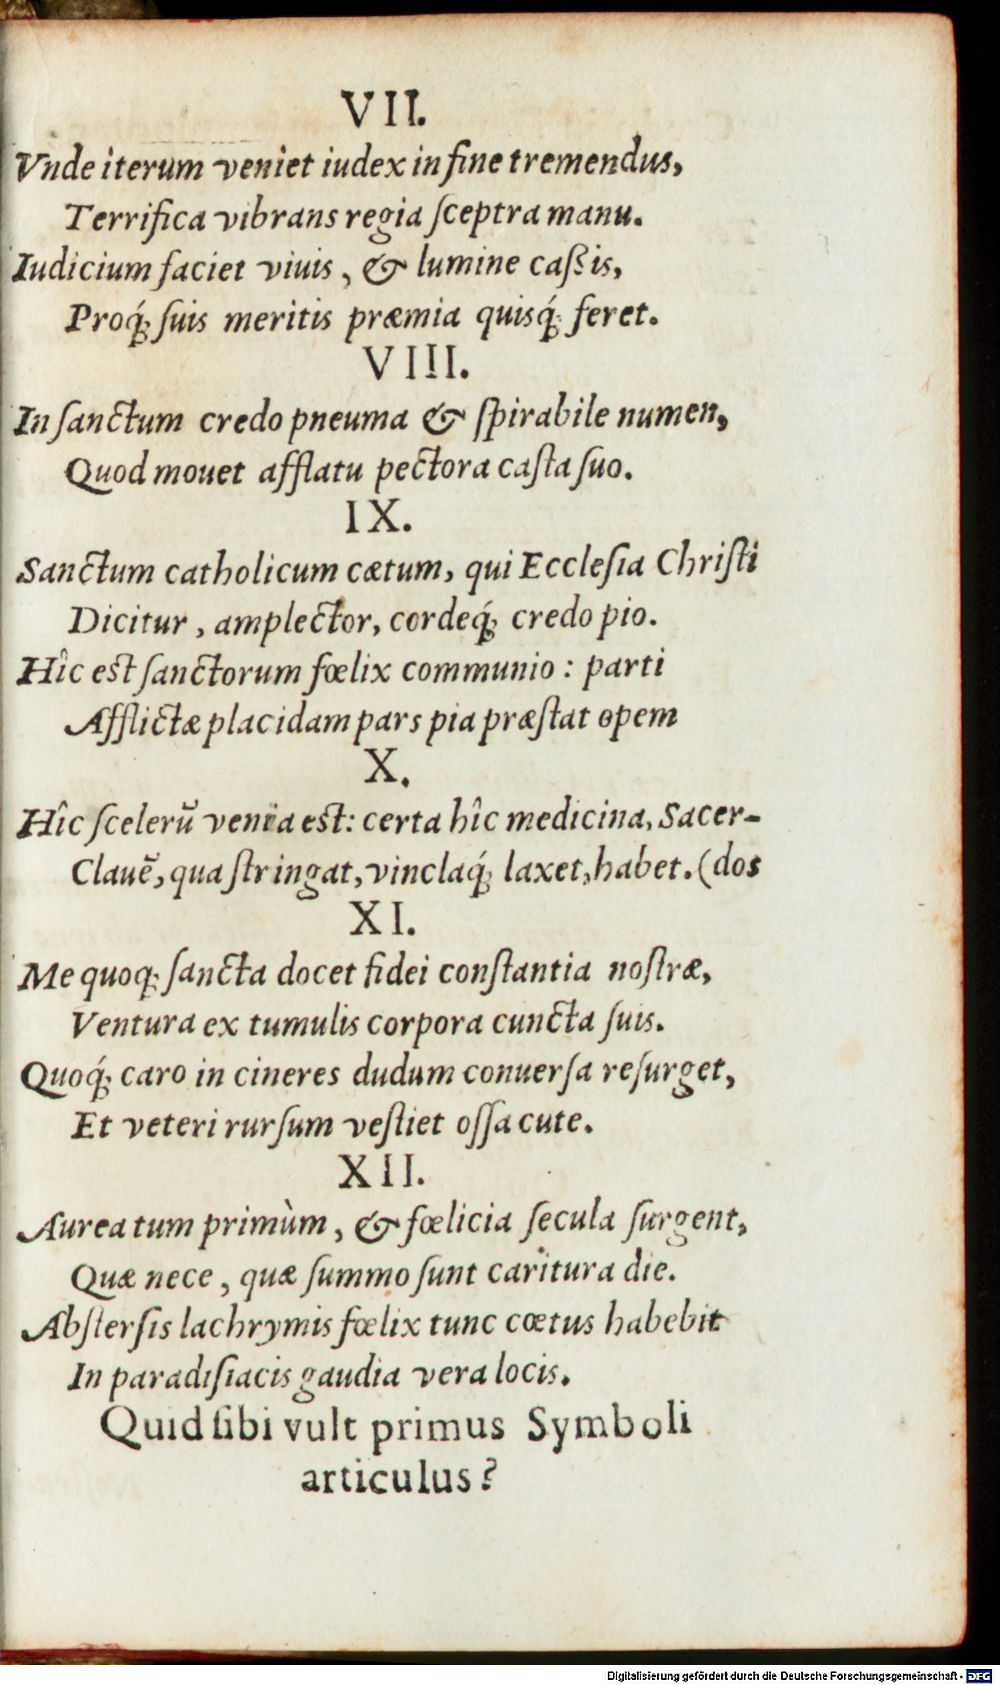 VII.
Vnde iterum veniet iudex in fine tremendus,
Terrifica vibrans regia ſceptra manu.
Iudicium faciet viuis, & lumine caſsis,
Proq́; ſuis meritis præmia quisq́; feret.
VIII.
In ſanctum credo pneuma & ſpirabile numen,
Quod mouet afflatu pectora caſta ſuo.
IX.
Sanctum catholicum cætum, qui Eccleſia Chriſti
Dicitur, amplector, cordeq́; credo pio.
Hîc est ſanctorum fœlix communio: parti
Afflictæ placidam pars pia præſtat opem
X.
Hîc ſcelerū venia est: certa hîc medicina, Sacer-
Clauē, qua ſtringat, vinclaq́; laxet, habet. (dos
XI.
Me quoq; ſancta docet fidei conſtantia noſtræ,
Ventura ex tumulis corpora cuncta ſuis.
Quoq́; caro in cineres dudum conuerſa reſurget,
Et veteri rurſum veſtiet oſſa cute.
XII.
Aurea tum primùm, & fœlicia ſecula ſurgent,
Quæ nece, quæ ſummo ſunt caritura die.
Abſterſis lachrymis fœlix tunc cœtus habebit
In paradiſiacis gaudia vera locis.
Quid ſibi vult primus Symboli
articulus?
Digitalisierung gefördert durch die Deutsche Forschungsgemeinschaft - DFG